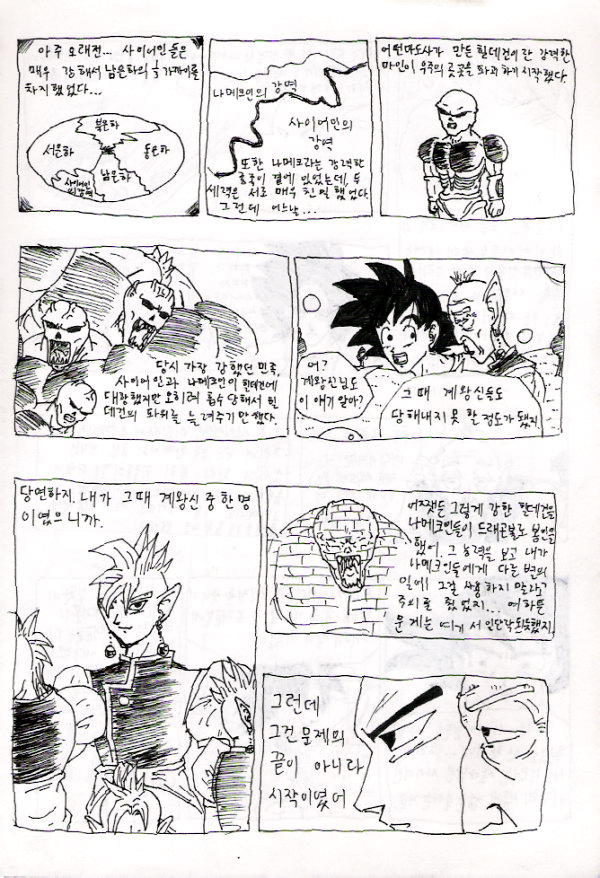 아주 오래전... 사이어인들은
매우 강해서 남은하의 ⅓ 가까이를
차지했었다...
북은하
서은하
동은하
남은하
사이어인
의 강역
나메크인의 강역
사이어인의
강역
또한 나메크라는 강력한
종족이 곁에 있었는데, 두
세력은 서로 매우 친밀했었다.
그런데 어느날...
어떤 마도사가 만든 힐데건이란 강력한
마인이 우주의 곳곳을 파괴하기 시작했다.
당시 가장 강했던 민족,
사이어인과 나메크인이 힐데건에
대항했지만 오히려 흡수 당해서 힐
데건의 파워를 늘려주기만 했다.
어?
계왕신님도
이 얘기 알아?
그 때 계왕신들도
당해내지 못 할 정도가 됐지.
당연하지. 내가 그때 계왕신 중 한명
이였으니까.
어쨋든 그렇게 강한 힐데건을
나메크인들이 드래곤볼로 봉인을
했어. 그 능력을 보고 내가
나메크인들에게 다른 변의
일에 그걸 사용하지 말라고
주의를 줬었지... 여하튼
문제는 여기서 일단락되는듯했지
그런데
그건 문제의
끝이 아니라
시작이였어